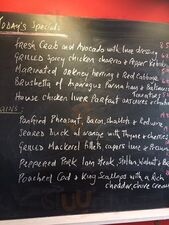 TODAY'S Specials
FRESH CRAB and Avocado with lime dressing
GRILLED Spicy chicken chorizo & Pepper
Marinated Orkney herring & Red cabbage
Brushetta of Asparagus Parma ham & Balsamic
House chicken liver Parfait
MAINS:
Panfried Pheasant, Bacon, shallots & Red wine
Seared Duck w orange with Thyme & cherries
Grilled Mackerel fillets capers lime &
Peppered Pork loin steak, Stilton, Walnut &
Poached Cod & King Scallops with a Rich
cheddar, chive